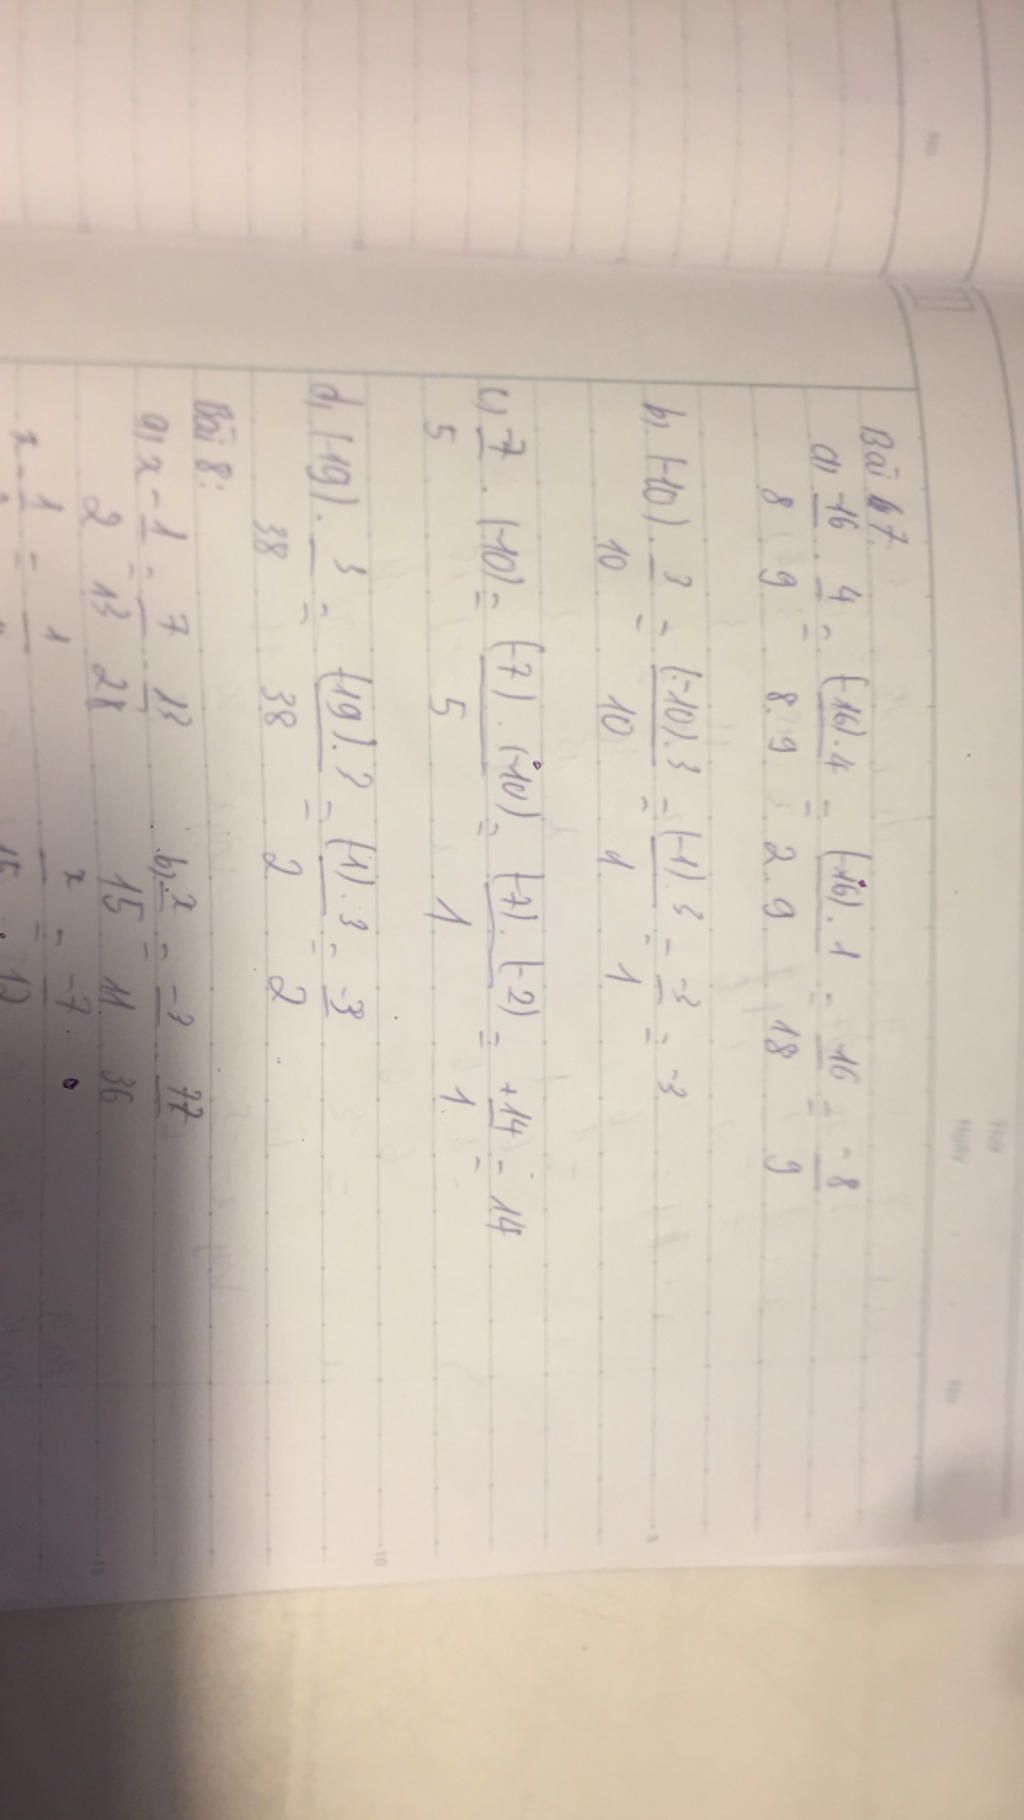 Bài 7.
a, -16/8 . 4/9 = (-16).4/8.9 = (-16).1/2.9 = 16/18 = -8/9
b, (-10) . 3/10 = (-10).3/10 = (-1).3/1 = -3/1 = -3
c, 7/5 . (-10) = (-7).(-10)/5 = (-7).(-2)/1 = +14/1 = 14
d, (-19) . 3/38 = (-19).3/38 = (-1).3/2 = -3/2
Bài 8:
a, x - 1/2 = 7/13 . 13/28 b, x/15 = -3/11 . 77/36
x - 1 = 1 x/15 = -7/12